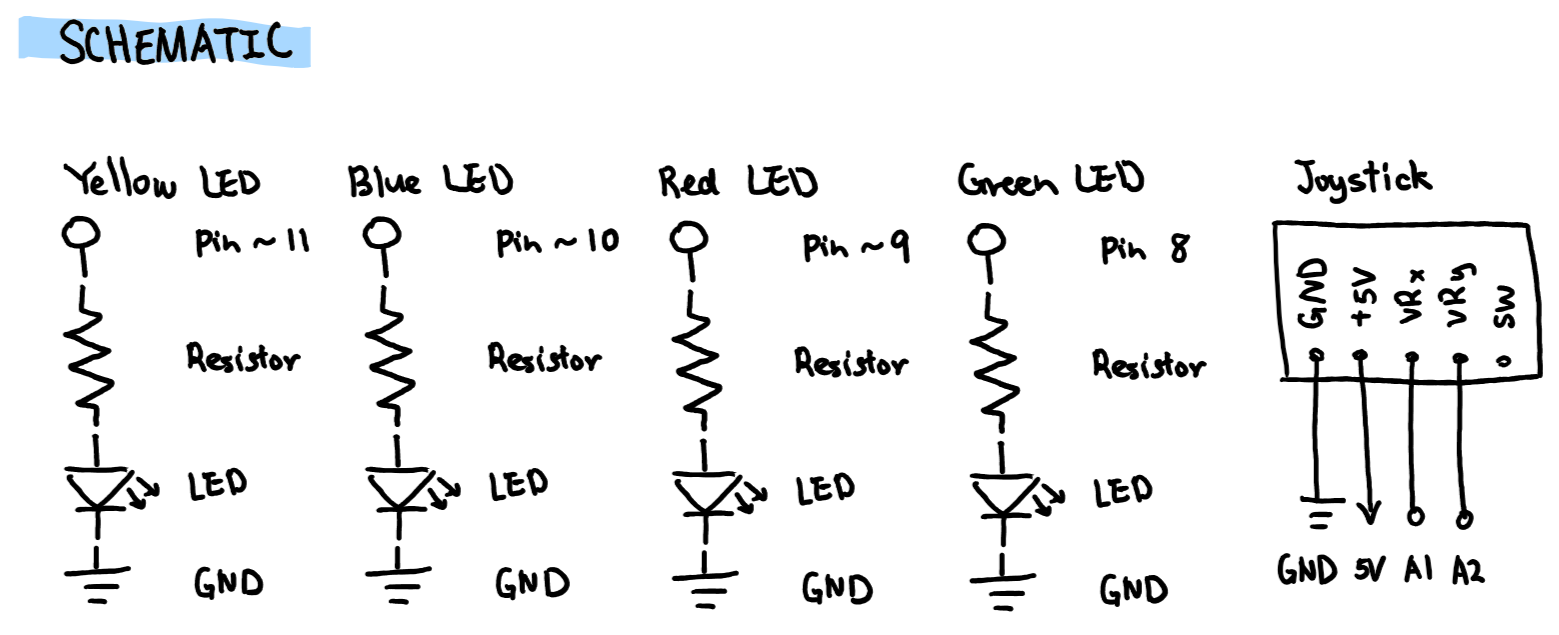 SCHEMATIC
Yellow LED
Pin ~ 11
Resistor
LED
GND
Blue LED
Pin ~ 10
Resistor
LED
GND
Red LED
Pin ~ 9
Resistor
LED
GND
Green LED
Pin 8
Resistor
LED
GND
Joystick
GND
+5V
VRx
VRy
SW
GND 5V A1 A2